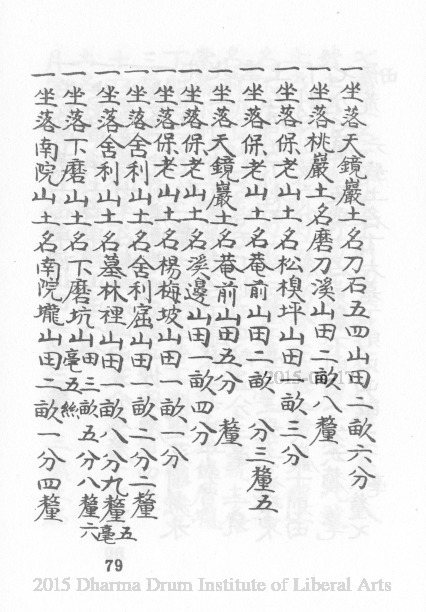 一坐落天鏡巖土名刀石五四山田二畝六分
一坐落桃巖土名磨刀溪山田二畝八釐
一坐落保老山土名松模坪山田一畝三分
一坐落保老山土名菴前山田二畝 分三釐五
一坐落天鏡巖土名菴前山田五分 釐
一坐落保老山土名溪邊山田一畝四分
一坐落保老山土名楊梅坡山田一畝一分
一坐落舍利山土名舍利窟山田一畝二分二釐
一坐落舍利山土名墓林裡山田一畝八分九釐五毫
一坐落下磨山土名下磨坑山田三畝五分八釐六毫五絲
一坐落南院山土名南院壠山田二畝一分四釐
79
2015 Dharma Drum Institute of Liberal Arts